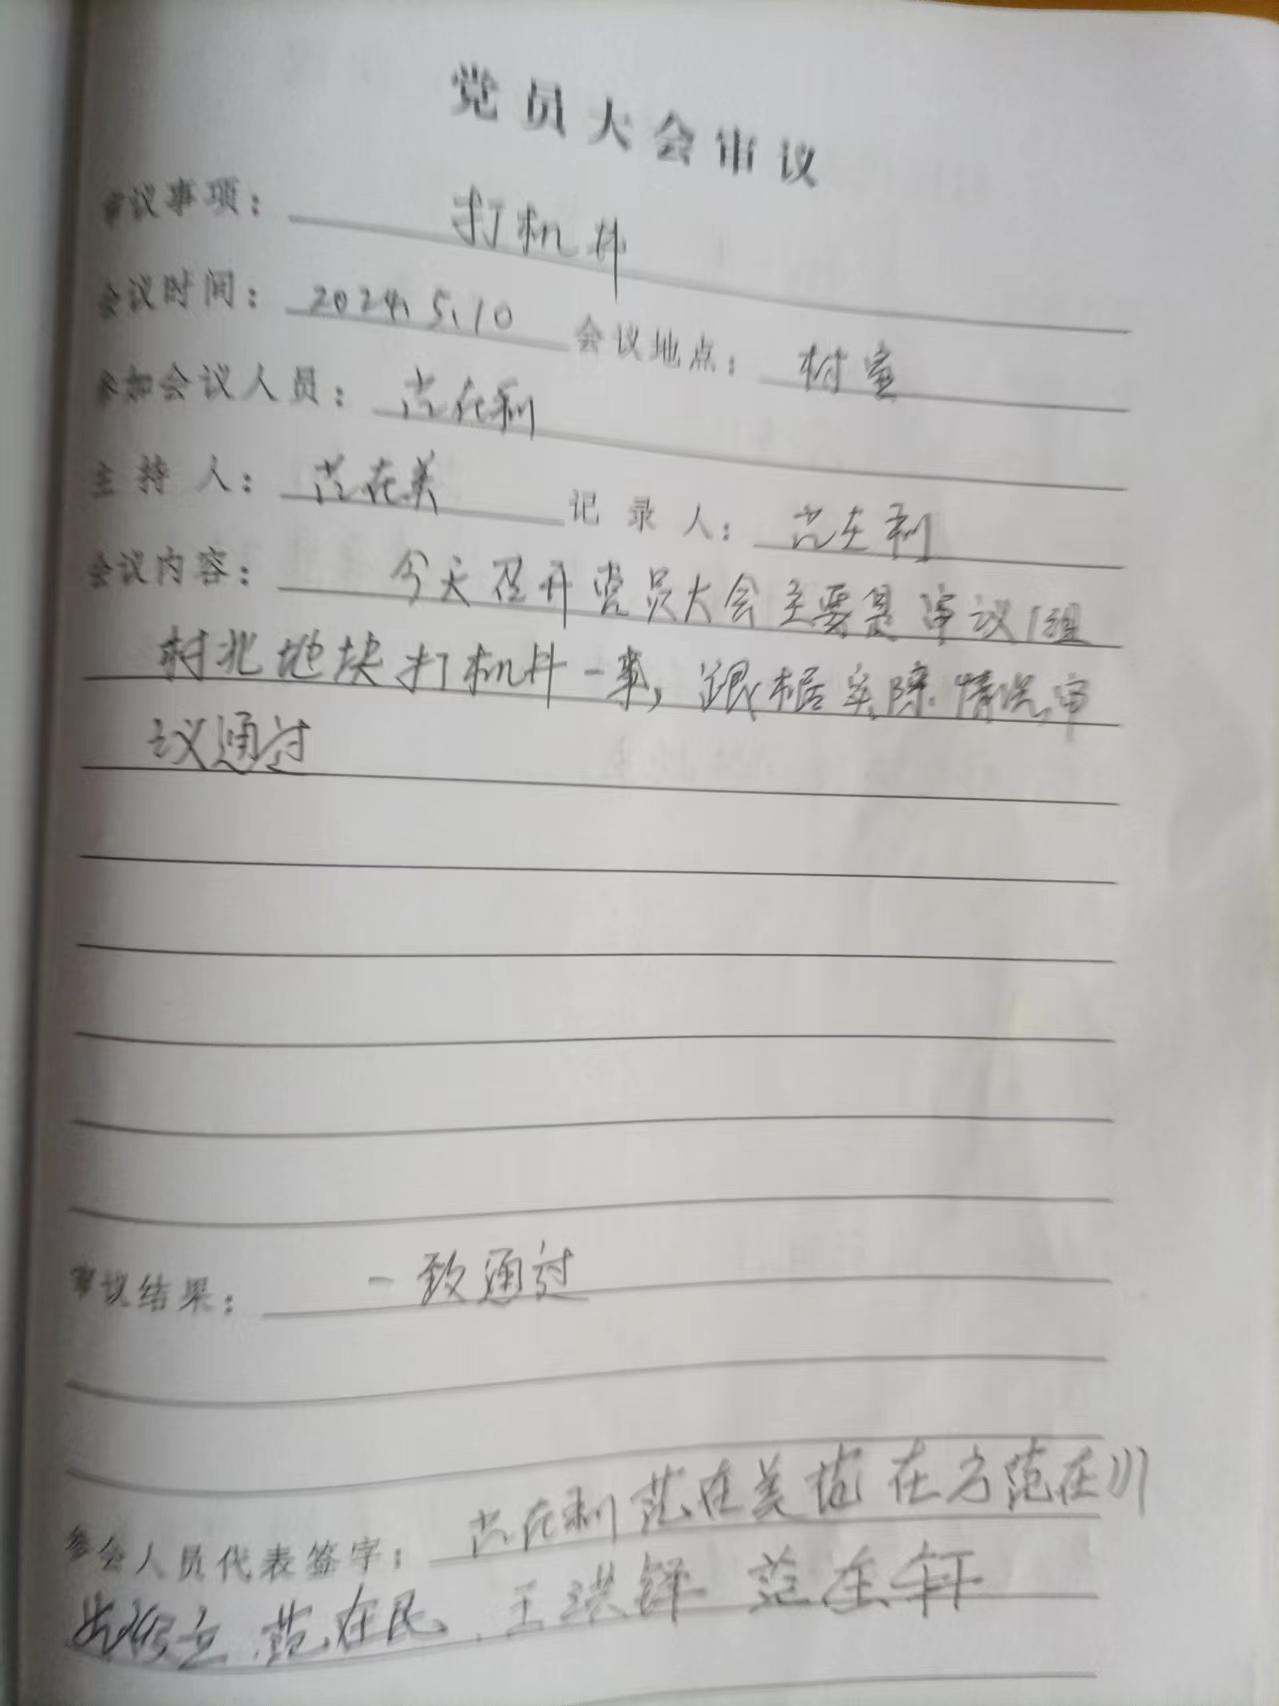 党员大会审议
审议事项： 打机井
会议时间： 2024、5、10 会议地点： 村室
参加会议人员： 范在利
主持人： 范在美 记录人： 范在利
会议内容： 今天召开党员大会主要是审议1组
村北地块打机井一事，跟据实际情况审
议通过
审议结果： 一致通过
参会人员代表签字： 范在利 范在美 范在方 范在川
范在民 王洪铎 范在轩